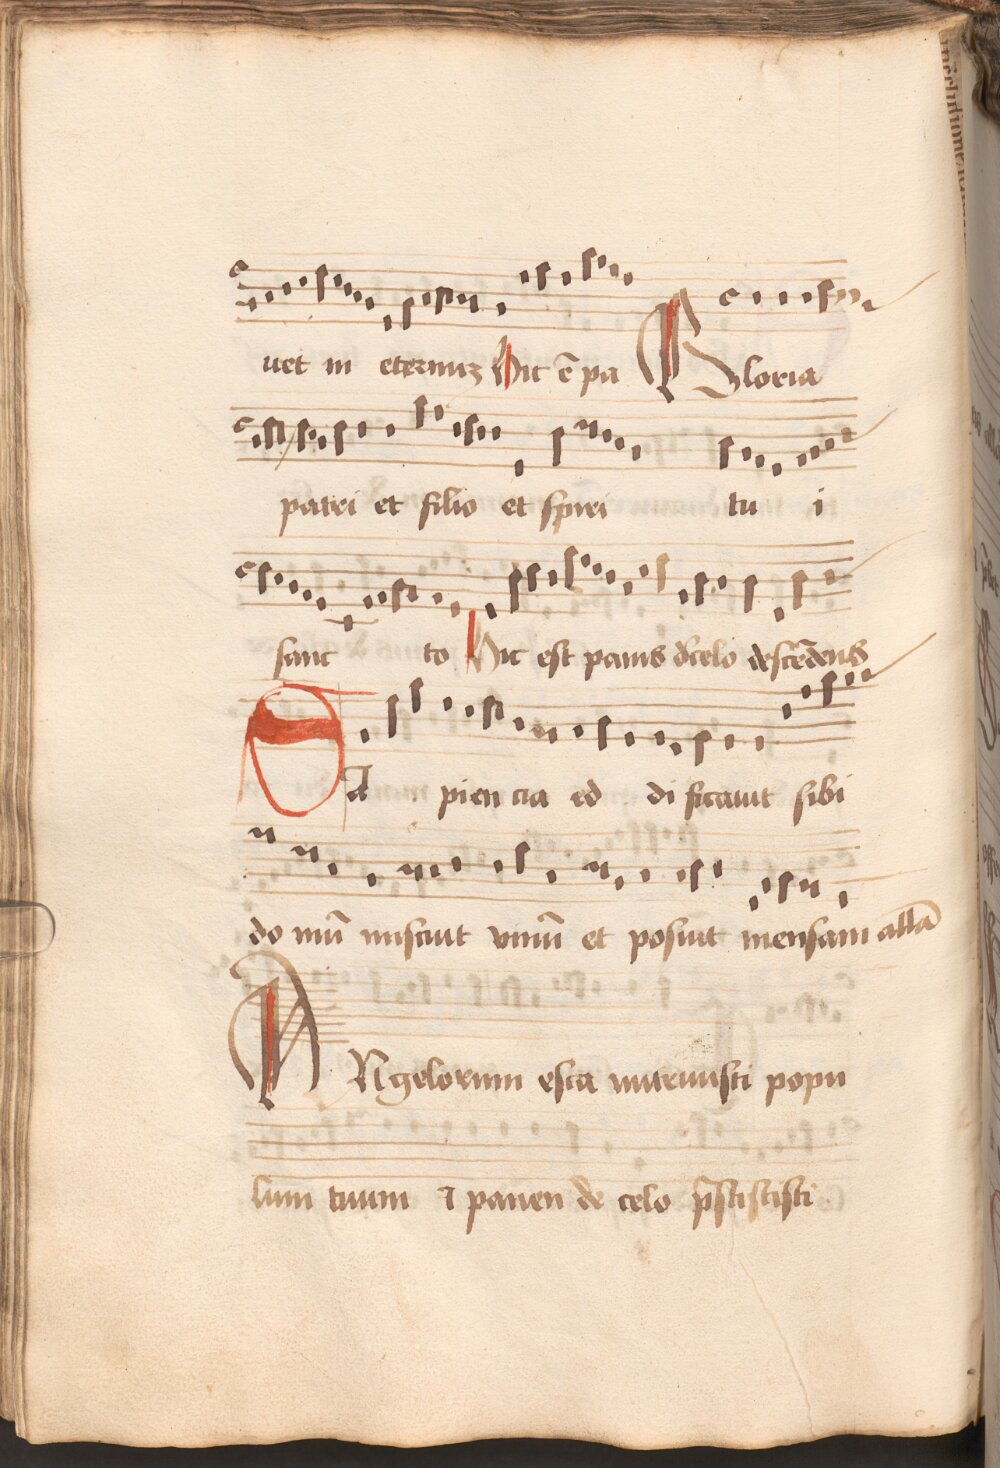 uet in eternuꝫ Hic ē pa Gloria
patri et filio et spiri tu i
sanc to Hic est panis d̄celo descēdens
SA pien cia ed di ficauit sibi
do mū miscuit vinū et posuit mensam allā
ANgelorum esca nutriuisti popu
lum tuum ⁊ panen de celo p̄stitisti